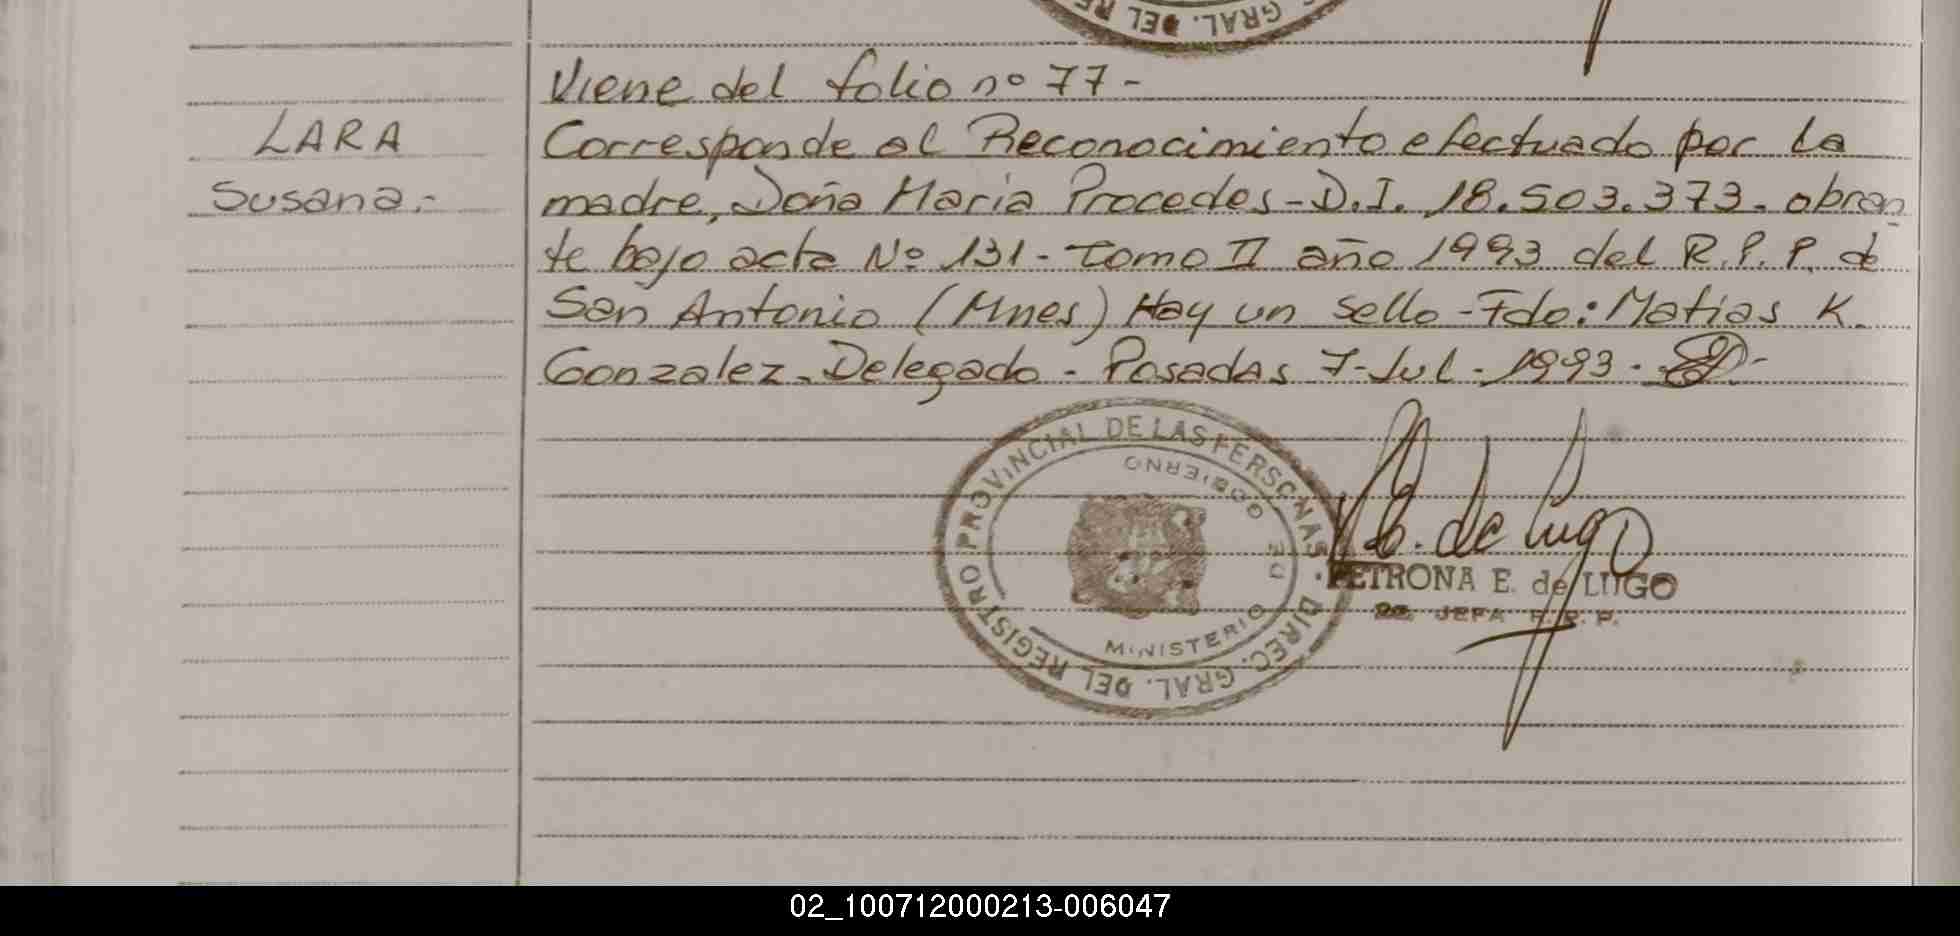 GRAL. DEL RE
Viene del folio nº 77-
LARA
Susana.-
Corresponde al Reconocimiento efectuado por la
madre, Doña Maria Procedes - D.I. 18.503.373. obran
te bajo acta Nº 131 - tomo II año 1993 del R.P.P. de
San Antonio (Mnes) Hay un sello - Fdo: Matias K.
Gonzalez. Delegado - Posadas 7-Jul-1993.
DIREC. GRAL. DEL REGISTRO PROVINCIAL DE LAS PERSONAS
MINISTERIO DE GOBIERNO
E. de Lugo
PETRONA E. de LUGO
JEFA R.P.P.
02_100712000213-006047